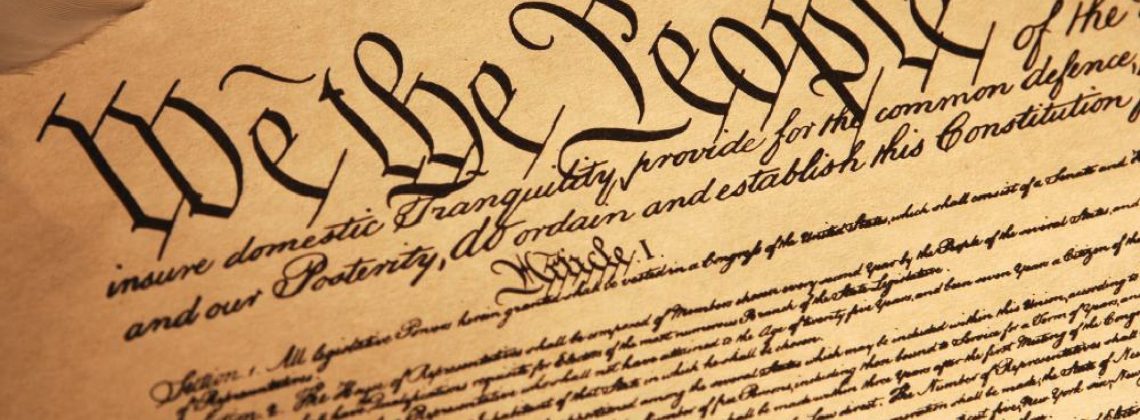 We the People of the
insure domestic Tranquility, provide for the common defence,
and our Posterity, do ordain and establish this Constitution
Article I.
Section 1. All legislative Powers herein granted shall be vested in a Congress of the United States, which shall consist of a Senate and
of Representatives.
Section 2. The House of Representatives shall be composed of Members chosen every second Year by the People of the several States, and
Qualifications requisite for Electors of the most numerous Branch of the State Legislature.
Representative who shall not have attained to the Age of twenty five Years, and been seven Years a Citizen of the
Inhabitant of that State in which he shall be chosen.
among the several States which may be included within this Union, according to
Number of free Persons, including those bound to Service for a Term of Years, and
shall be made within three Years after the first Meeting of the Cong
The Number of Representatives shall
shall be made, the State of New
five, New York six, New